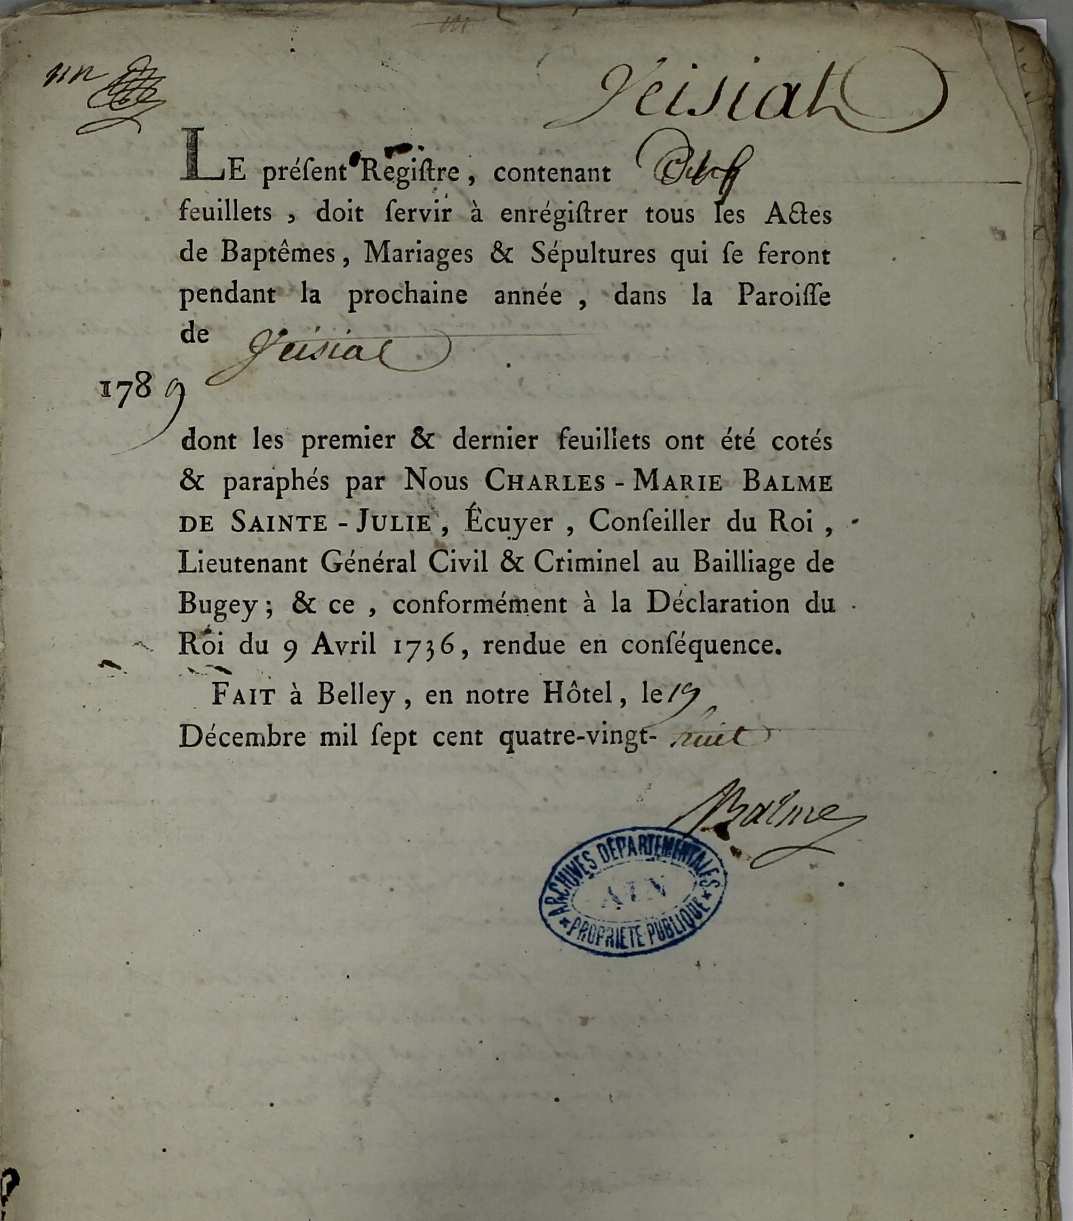 un
Veisiat
LE préſent Regiſtre, contenant
feuillets, doit ſervir à enrégiſtrer tous les Actes
de Baptêmes, Mariages & Sépultures qui ſe feront
pendant la prochaine année, dans la Paroiſſe
de Veisiat
1789
dont les premier & dernier feuillets ont été cotés
& paraphés par Nous CHARLES-MARIE BALME
DE SAINTE-JULIE, Écuyer, Conſeiller du Roi,
Lieutenant Général Civil & Criminel au Bailliage de
Bugey; & ce, conformément à la Déclaration du
Roi du 9 Avril 1736, rendue en conſéquence.
FAIT à Belley, en notre Hôtel, le 19
Décembre mil ſept cent quatre-vingt-huit
Balme
ARCHIVES DEPARTEMENTALES
AIN
PROPRIETE PUBLIQUE